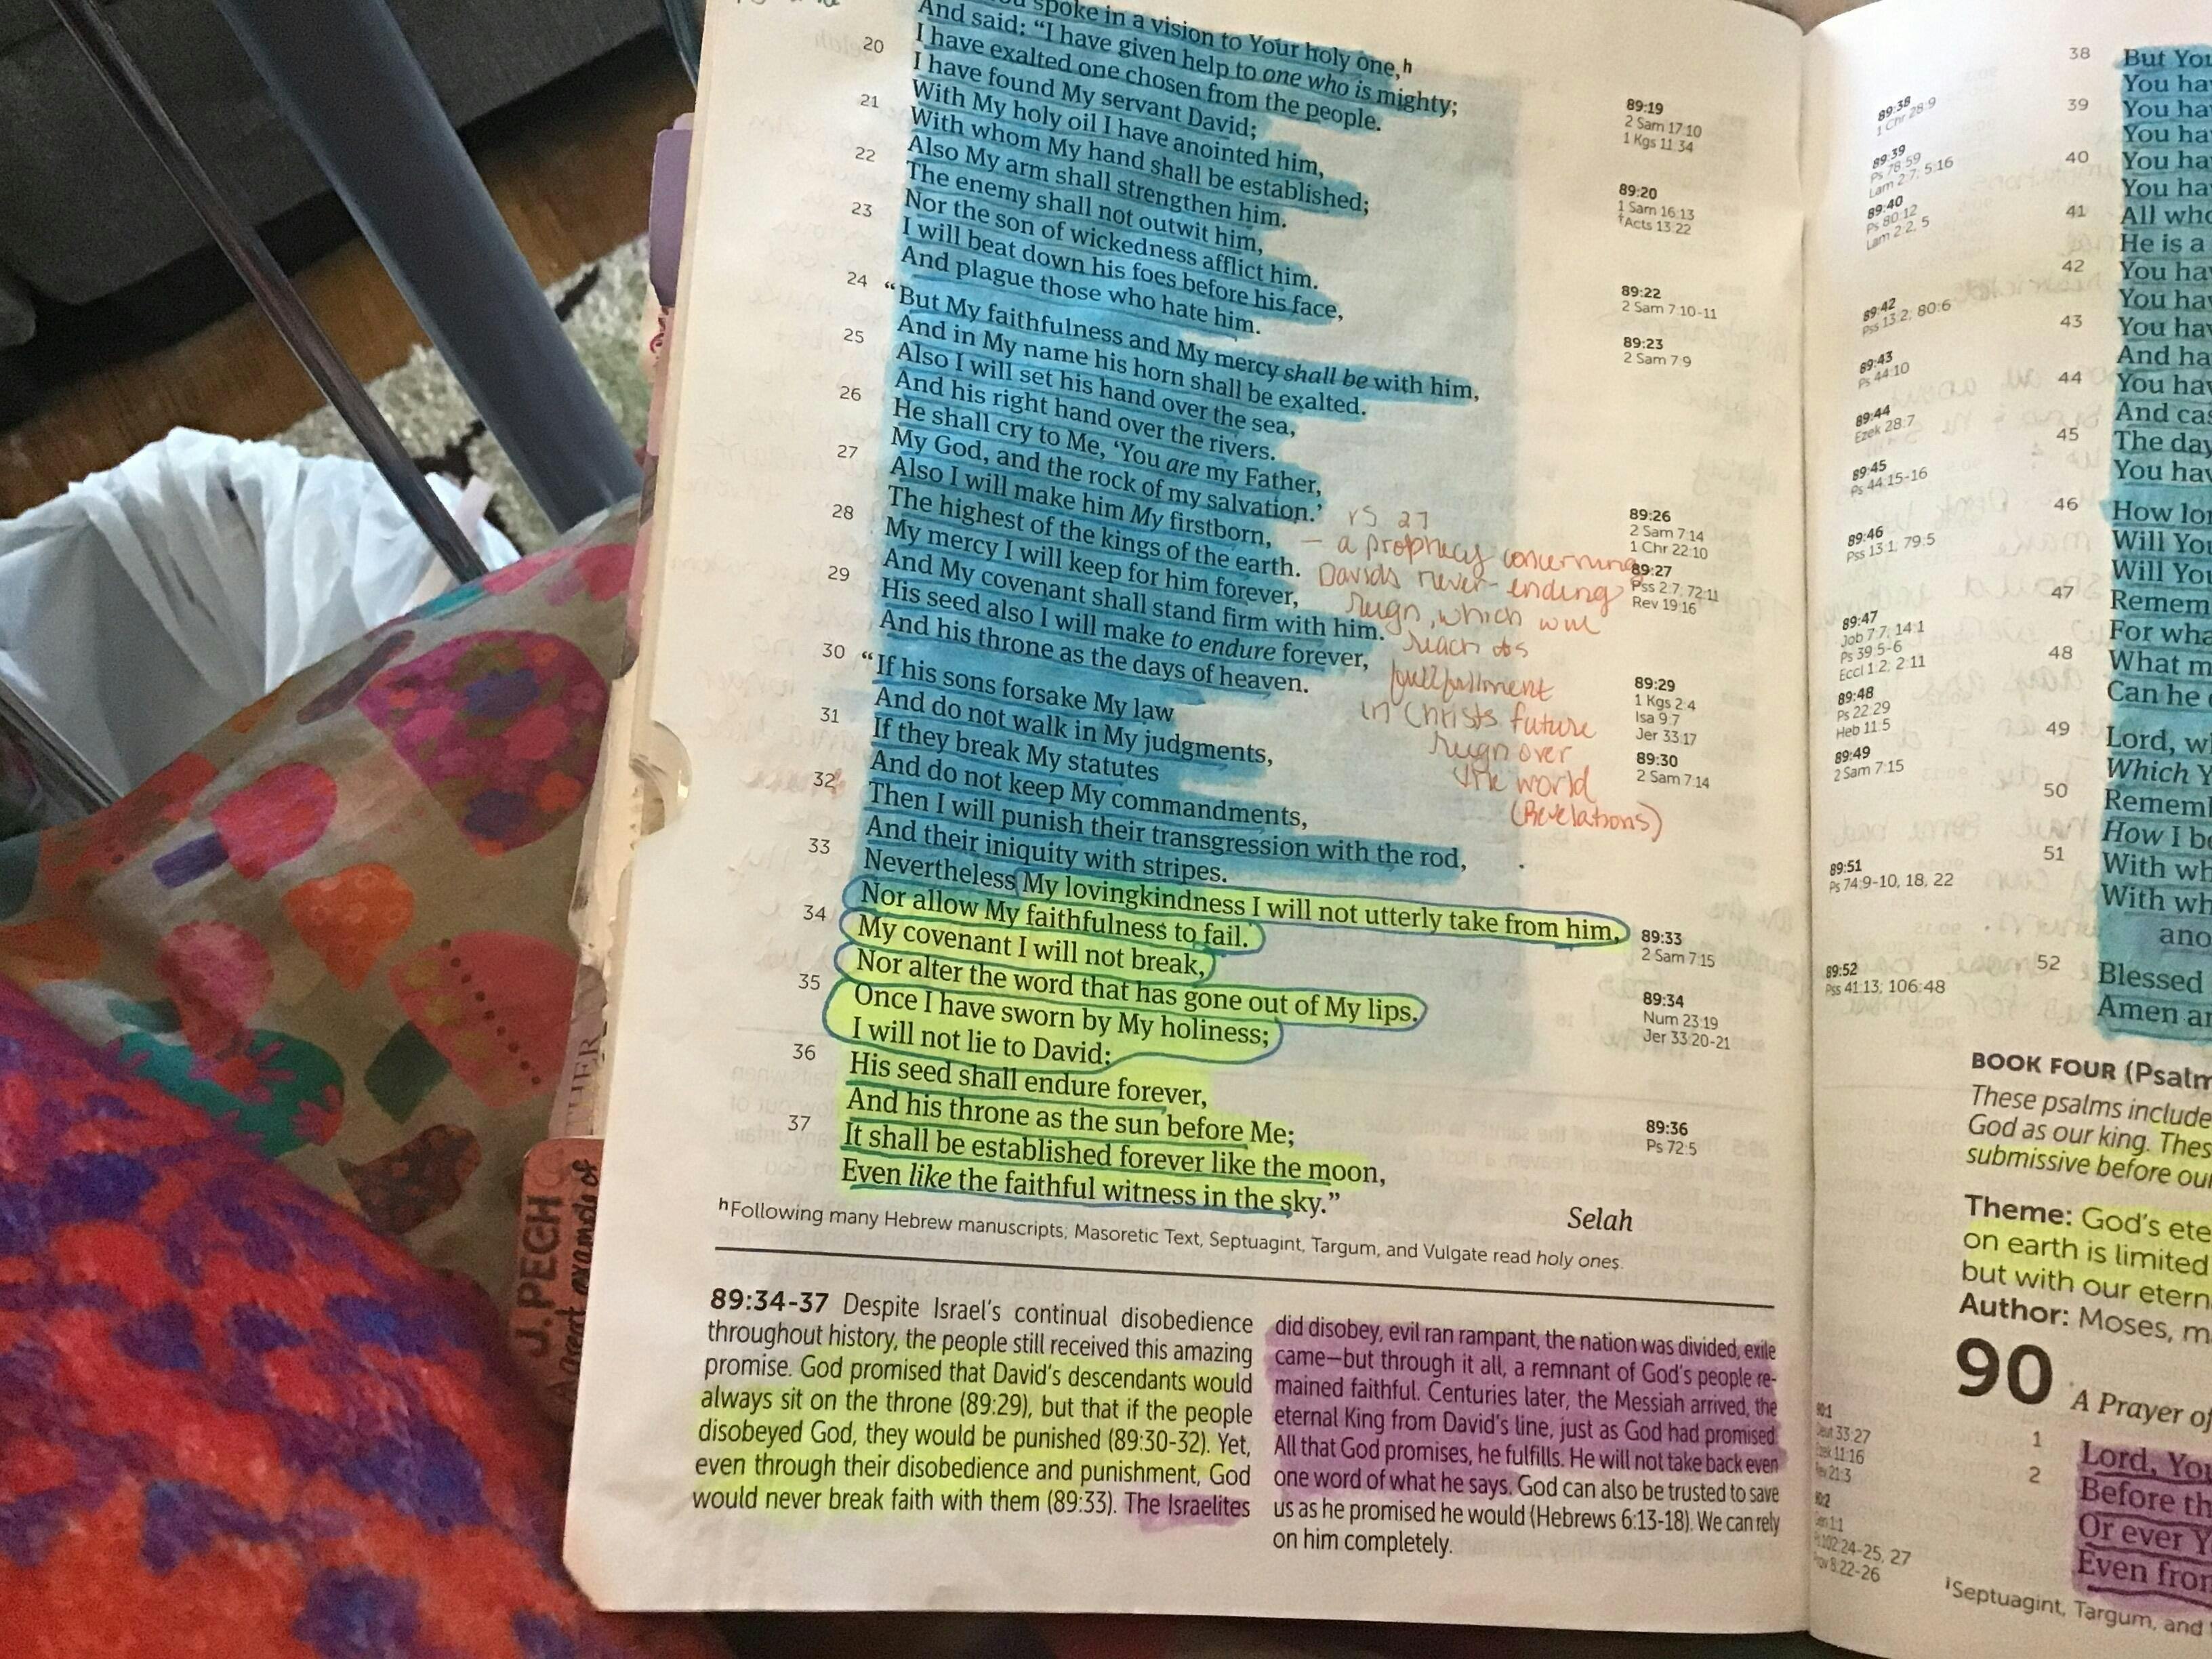 spoke in a vision to Your holy one,ʰ
And said: “I have given help to one who is mighty;
I have exalted one chosen from the people.
20 I have found My servant David;
With My holy oil I have anointed him,
21 With whom My hand shall be established;
Also My arm shall strengthen him.
22 The enemy shall not outwit him,
Nor the son of wickedness afflict him.
23 I will beat down his foes before his face,
And plague those who hate him.
24 “But My faithfulness and My mercy shall be with him,
And in My name his horn shall be exalted.
25 Also I will set his hand over the sea,
And his right hand over the rivers.
26 He shall cry to Me, ‘You are my Father,
My God, and the rock of my salvation.’
27 Also I will make him My firstborn,
The highest of the kings of the earth.
28 My mercy I will keep for him forever,
And My covenant shall stand firm with him.
29 His seed also I will make to endure forever,
And his throne as the days of heaven.
30 “If his sons forsake My law
And do not walk in My judgments,
31 If they break My statutes
And do not keep My commandments,
32 Then I will punish their transgression with the rod,
And their iniquity with stripes.
33 Nevertheless My lovingkindness I will not utterly take from him,
Nor allow My faithfulness to fail.
34 My covenant I will not break,
Nor alter the word that has gone out of My lips.
35 Once I have sworn by My holiness;
I will not lie to David:
36 His seed shall endure forever,
And his throne as the sun before Me;
37 It shall be established forever like the moon,
Even like the faithful witness in the sky.”
Selah
vs 27
– a prophecy concerning
Davids never-ending
reign, which will
reach its
fullfillment
in Christs future
reign over
the world
(Revelations)
89:19
2 Sam 17:10
1 Kgs 11:34
89:20
1 Sam 16:13
†Acts 13:22
89:22
2 Sam 7:10-11
89:23
2 Sam 7:9
89:26
2 Sam 7:14
1 Chr 22:10
89:27
Pss 2:7; 72:11
Rev 19:16
89:29
1 Kgs 2:4
Isa 9:7
Jer 33:17
89:30
2 Sam 7:14
89:33
2 Sam 7:15
89:34
Num 23:19
Jer 33:20-21
89:36
Ps 72:5
ʰFollowing many Hebrew manuscripts; Masoretic Text, Septuagint, Targum, and Vulgate read holy ones.
89:34-37 Despite Israel’s continual disobedience
throughout history, the people still received this amazing
promise. God promised that David’s descendants would
always sit on the throne (89:29), but that if the people
disobeyed God, they would be punished (89:30-32). Yet,
even through their disobedience and punishment, God
would never break faith with them (89:33). The Israelites
did disobey, evil ran rampant, the nation was divided, exile
came—but through it all, a remnant of God’s people re-
mained faithful. Centuries later, the Messiah arrived, the
eternal King from David’s line, just as God had promised.
All that God promises, he fulfills. He will not take back even
one word of what he says. God can also be trusted to save
us as he promised he would (Hebrews 6:13-18). We can rely
on him completely.
J.PECH
example of
89:38
1 Chr 28:9
89:39
Ps 78:59
Lam 2:7; 5:16
89:40
Ps 80:12
Lam 2:2, 5
89:42
Pss 13:2; 80:6
89:43
Ps 44:10
89:44
Ezek 28:7
89:45
Ps 44:15-16
89:46
Pss 13:1; 79:5
89:47
Job 7:7; 14:1
Ps 39:5-6
Eccl 1:2; 2:11
89:48
Ps 22:29
Heb 11:5
89:49
2 Sam 7:15
89:51
Ps 74:9-10, 18, 22
89:52
Pss 41:13; 106:48
38 But You
You ha
39 You ha
You ha
40 You ha
You ha
41 All who
He is a
42 You ha
You ha
43 You hav
And ha
44 You hav
And cas
45 The day
You hav
46 How lor
Will You
Will You
47 Remem
For wha
48 What m
Can he
49 Lord, w
Which Y
50 Remem
How I b
51 With wh
With wh
ano
52 Blessed
Amen an
BOOK FOUR (Psalm
These psalms include
God as our king. Thes
submissive before our
Theme: God’s ete
on earth is limited
but with our etern
Author: Moses, m
90
A Prayer of
1 Lord, You
2 Before th
Or ever Y
Even fron
90:1
Deut 33:27
Ezek 11:16
Rev 21:3
90:2
Gen 1:1
Ps 102:24-25, 27
Prov 8:22-26
ⁱSeptuagint, Targum, and